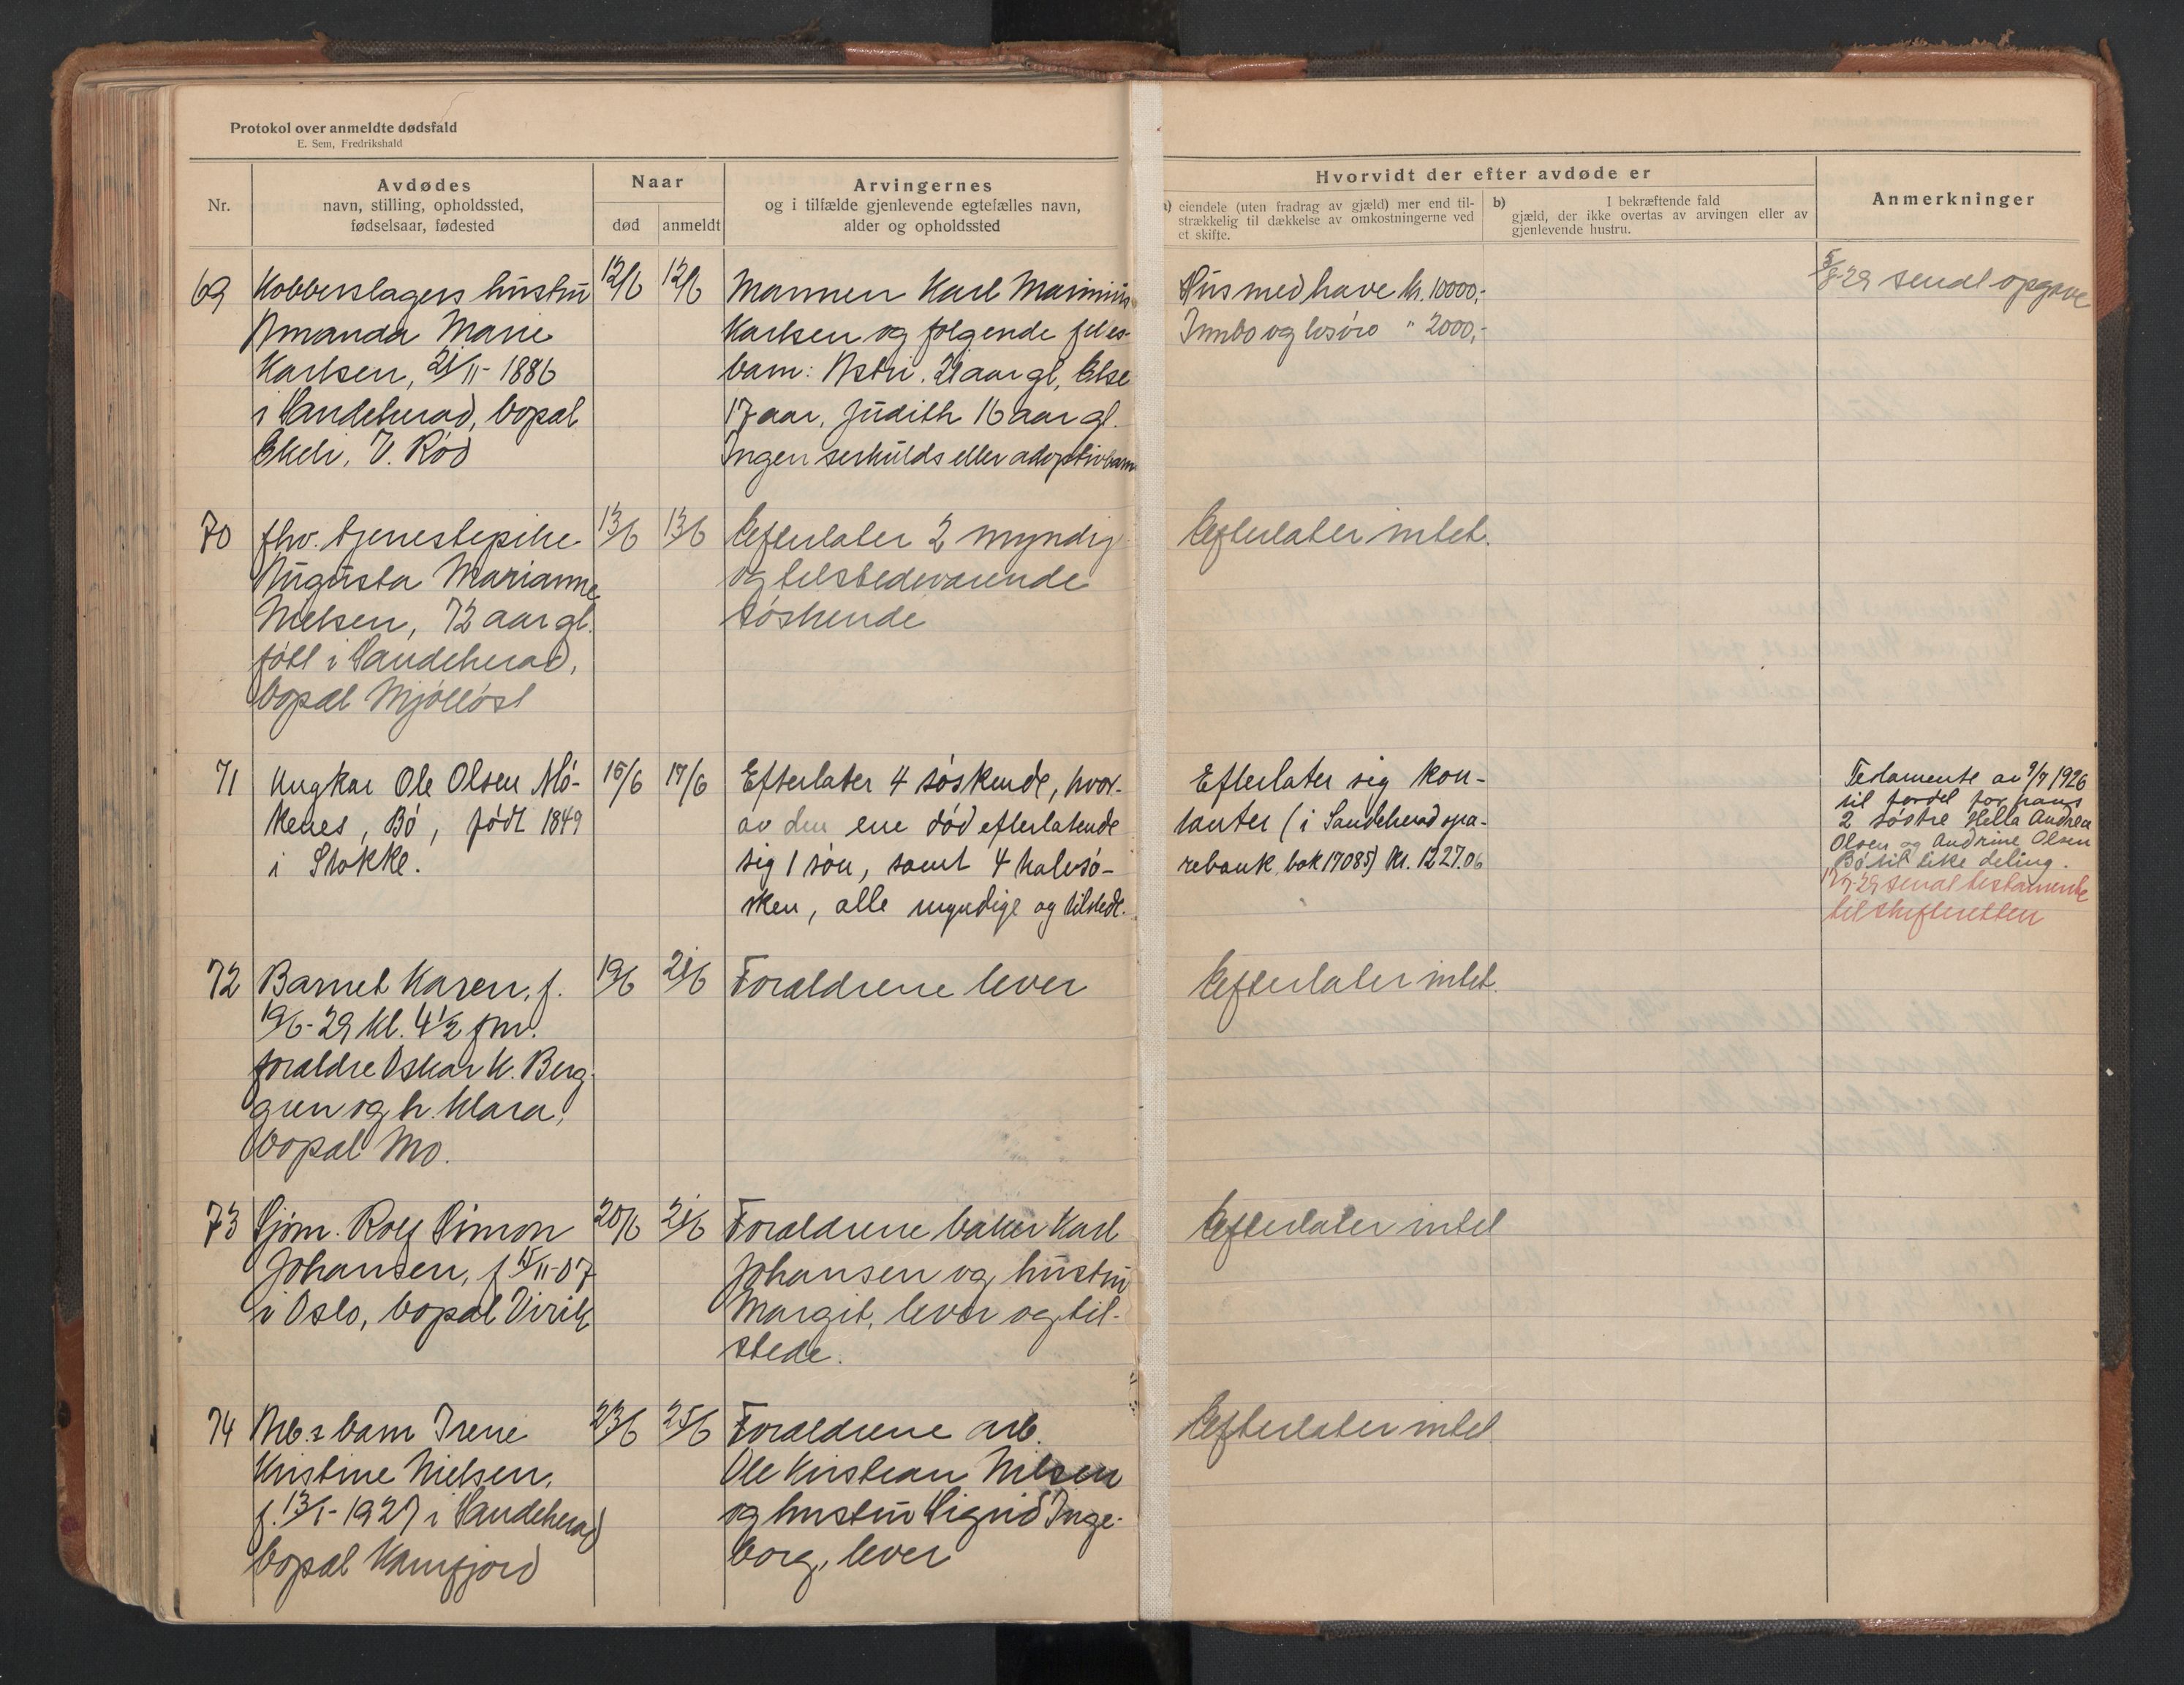 Protokol over anmeldte dødsfald
E. Sem, Fredrikshald
Nr.
Avdødes
navn, stilling, opholdssted,
fødselsaar, fødested
Naar
død
anmeldt
Arvingernes
og i tilfælde gjenlevende egtefælles navn,
alder og opholdssted
Hvorvidt der efter avdøde er
a) eiendele (uten fradrag av gjæld) mer end til-
strækkelig til dækkelse av omkostningerne ved
et skifte.
b) I bekræftende fald
gjæld, der ikke overtas av arvingen eller av
gjenlevende hustru.
Anmerkninger
69
Kobberslagers hustru
Amanda Marie
Karlsen, 21/11-1886
i Sandeherad, bopæl
Ekeli, V. Rød
12/6
12/6
Mannen Karl Marinius
Karlsen og følgende felles-
barn: Astri. 21 aar gl, Else
17 aar, Judith 16 aar gl.
Ingen serkulds eller adoptivbarn
Hus med have kr. 10000,-
Innbo og løsøre " 2000,-
5/8-29 sendt opgave
70
fhv. tjenestepike
Augusta Marianne
Nielsen, 72 aar gl.
født i Sandeherad,
bopæl Mjølløst
13/6
13/6
Efterlater 2 myndig
og tilstedeværende
søskende
Efterlater intet.
71
Ungkar Ole Olsen Mø-
kenes, Bø, født 1849
i Stokke.
15/6
17/6
Efterlater 4 søskende, hvor-
av den ene død efterlatende
sig 1 søn, samt 4 halvsø-
sken, alle myndige og tilstede.
Efterlater sig kon-
tanter (i Sandeherad spa-
rebank, bok 17085) kr. 1227.06
Testamente av 9/7 1926
til fordel for hans
2 søstre Hella Andrea
Olsen og Andrine Olsen
Bø til like deling.
17/7-29 sendt testamente
til skifteretten
72
Barnet Karen, f.
19/6-29 kl. 4½ fm.
foreldre Oskar K. Berg-
gren og h. Klara,
bopæl Mo.
19/6
21/6
Foreldrene lever
Efterlater intet.
73
Sjøm. Rolf Simon
Johansen, f 15/11-07
i Oslo, bopæl Virik
20/6
21/6
Foreldrene baker Karl
Johansen og hustru
Margit, lever og til-
stede.
Efterlater intet
74
Arb.s barn Irene
Kristine Nielsen,
f. 13/1-1927 i Sandeherad
bopæl Kamfjord
23/6
25/6
Foreldrene arb.
Ole Kristian Nilsen
og hustru Sigrid Inge-
borg, lever
Efterlater intet